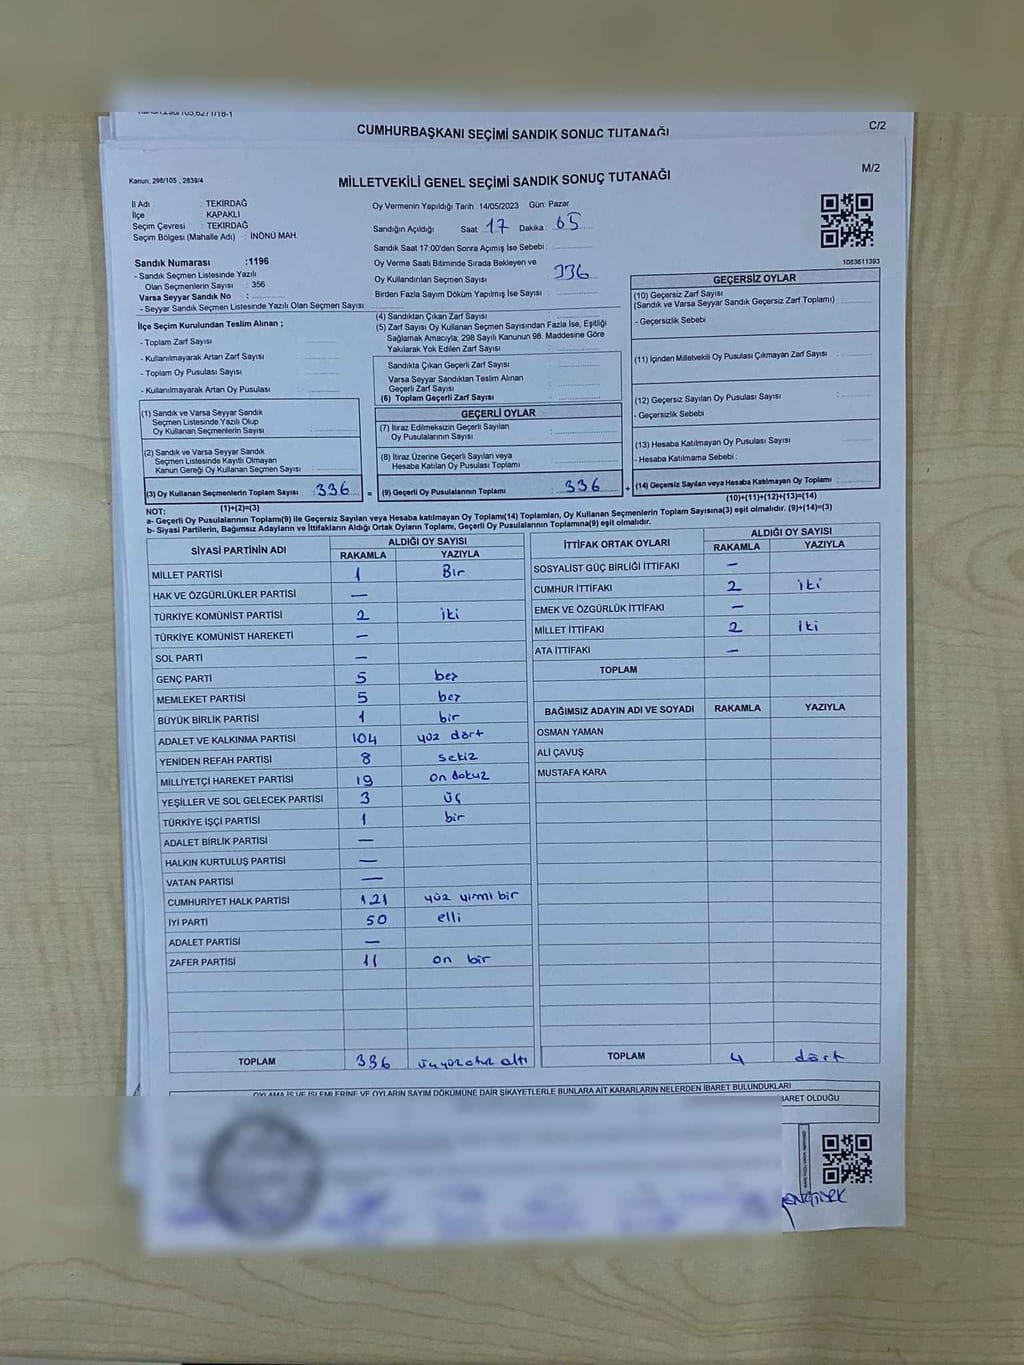 CUMHURBAŞKANI SEÇİMİ SANDIK SONUÇ TUTANAĞI
C/2
Kanun: 298/105 , 2839/4
MİLLETVEKİLİ GENEL SEÇİMİ SANDIK SONUÇ TUTANAĞI
M/2
İl Adı : TEKİRDAĞ
İlçe : KAPAKLI
Seçim Çevresi : TEKİRDAĞ
Seçim Bölgesi (Mahalle Adı) : İNÖNÜ MAH.
Sandık Numarası :1196
- Sandık Seçmen Listesinde Yazılı
Olan Seçmenlerin Sayısı : 356
Varsa Seyyar Sandık No :
- Seyyar Sandık Seçmen Listesinde Yazılı Olan Seçmen Sayısı:
Oy Vermenin Yapıldığı Tarih : 14/05/2023 Gün: Pazar
Sandığın Açıldığı Saat : 17 Dakika : 05
Sandık Saat 17:00'den Sonra Açımış İse Sebebi :
Oy Verme Saati Bitiminde Sırada Bekleyen ve
Oy Kullandırılan Seçmen Sayısı : 336
Birden Fazla Sayım Döküm Yapılmış İse Sayısı :
1083611393
İlçe Seçim Kurulundan Teslim Alınan ;
- Toplam Zarf Sayısı :
- Kullanılmayarak Artan Zarf Sayısı :
- Toplam Oy Pusulası Sayısı :
- Kullanılmayarak Artan Oy Pusulası :
(1) Sandık ve Varsa Seyyar Sandık
Seçmen Listesinde Yazılı Olup
Oy Kullanan Seçmenlerin Sayısı :
(2) Sandık ve Varsa Seyyar Sandık
Seçmen Listesinde Kayıtlı Olmayan
Kanun Gereği Oy Kullanan Seçmen Sayısı :
(3) Oy Kullanan Seçmenlerin Toplam Sayısı : 336
(1)+(2)=(3)
(4) Sandıktan Çıkan Zarf Sayısı :
(5) Zarf Sayısı Oy Kullanan Seçmen Sayısından Fazla İse, Eşitliği
Sağlamak Amacıyla; 298 Sayılı Kanunun 98. Maddesine Göre
Yakılarak Yok Edilen Zarf Sayısı :
Sandıkta Çıkan Geçerli Zarf Sayısı :
Varsa Seyyar Sandıktan Teslim Alınan
Geçerli Zarf Sayısı :
(6) Toplam Geçerli Zarf Sayısı :
GEÇERLİ OYLAR
(7) İtiraz Edilmeksizin Geçerli Sayılan
Oy Pusulalarının Sayısı :
(8) İtiraz Üzerine Geçerli Sayılan veya
Hesaba Katılan Oy Pusulası Toplamı :
= (9) Geçerli Oy Pusulalarının Toplamı : 336
GEÇERSİZ OYLAR
(10) Geçersiz Zarf Sayısı
(Sandık ve Varsa Seyyar Sandık Geçersiz Zarf Toplamı) :
- Geçersizlik Sebebi :
(11) İçinden Milletvekili Oy Pusulası Çıkmayan Zarf Sayısı :
(12) Geçersiz Sayılan Oy Pusulası Sayısı :
- Geçersizlik Sebebi
(13) Hesaba Katılmayan Oy Pusulası Sayısı :
- Hesaba Katılmama Sebebi :
+ (14) Geçersiz Sayılan veya Hesaba Katılmayan Oy Toplamı :
(10)+(11)+(12)+(13)=(14)
NOT:
a- Geçerli Oy Pusulalarının Toplamı(9) ile Geçersiz Sayılan veya Hesaba Katılmayan Oy Toplamı(14) Toplamları, Oy Kullanan Seçmenlerin Toplam Sayısına(3) eşit olmalıdır. (9)+(14)=(3)
b- Siyasi Partilerin, Bağımsız Adayların ve İttifakların Aldığı Ortak Oyların Toplamı, Geçerli Oy Pusulalarının Toplamına(9) eşit olmalıdır.
SİYASİ PARTİNİN ADI ALDIĞI OY SAYISI
RAKAMLA YAZIYLA
MİLLET PARTİSİ 1 Bir
HAK VE ÖZGÜRLÜKLER PARTİSİ —
TÜRKİYE KOMÜNİST PARTİSİ 2 iki
TÜRKİYE KOMÜNİST HAREKETİ —
SOL PARTİ —
GENÇ PARTİ 5 beş
MEMLEKET PARTİSİ 5 beş
BÜYÜK BİRLİK PARTİSİ 1 bir
ADALET VE KALKINMA PARTİSİ 104 yüz dört
YENİDEN REFAH PARTİSİ 8 sekiz
MİLLİYETÇİ HAREKET PARTİSİ 19 on dokuz
YEŞİLLER VE SOL GELECEK PARTİSİ 3 üç
TÜRKİYE İŞÇİ PARTİSİ 1 bir
ADALET BİRLİK PARTİSİ —
HALKIN KURTULUŞ PARTİSİ —
VATAN PARTİSİ —
CUMHURİYET HALK PARTİSİ 121 yüz yirmi bir
İYİ PARTİ 50 elli
ADALET PARTİSİ —
ZAFER PARTİSİ 11 on bir
TOPLAM 336 üçyüzotuz altı
İTTİFAK ORTAK OYLARI ALDIĞI OY SAYISI
RAKAMLA YAZIYLA
SOSYALİST GÜÇ BİRLİĞİ İTTİFAKI —
CUMHUR İTTİFAKI 2 iki
EMEK VE ÖZGÜRLÜK İTTİFAKI —
MİLLET İTTİFAKI 2 iki
ATA İTTİFAKI —
TOPLAM
BAĞIMSIZ ADAYIN ADI VE SOYADI RAKAMLA YAZIYLA
OSMAN YAMAN
ALİ ÇAVUŞ
MUSTAFA KARA
TOPLAM 4 dört
OYLAMA İŞ VE İŞLEMLERİNE VE OYLARIN SAYIM DÖKÜMÜNE DAİR ŞİKAYETLERLE BUNLARA AİT KARARLARIN NELERDEN İBARET BULUNDUKLARI
İBARET OLDUĞU